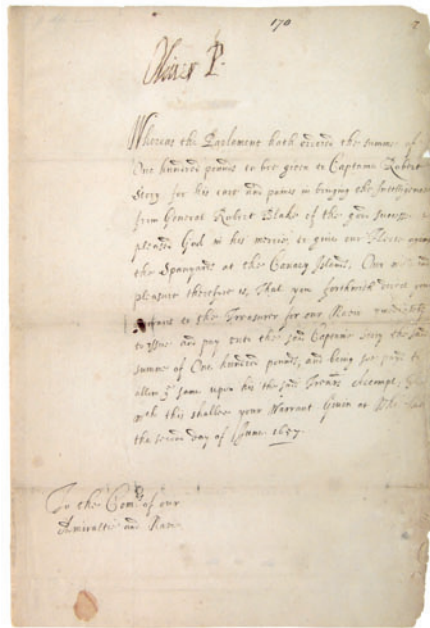 170
Oliver P.
Whereas the Parlement hath ordered the summe of
One hundred pounds to bee given to Captaine Robert
Story for his care and paines in bringing the Intelligence
from General Robert Blake of the good successe it
pleased God in his mercie, to give our Fleete against
the Spanyards at the Canary Islands. Our will and
pleasure therefore is, That you forthwith direct your
to the Treasurer for our Navie
to issue and pay unto the said Captaine Story the said
summe of One hundred pounds, and being soe paid to
allow yͤ same upon his the said accompt,
this shalbee your Warrant Given at
the second day of June 1657.
To the Comʳˢ of our
Admiraltie and Navie